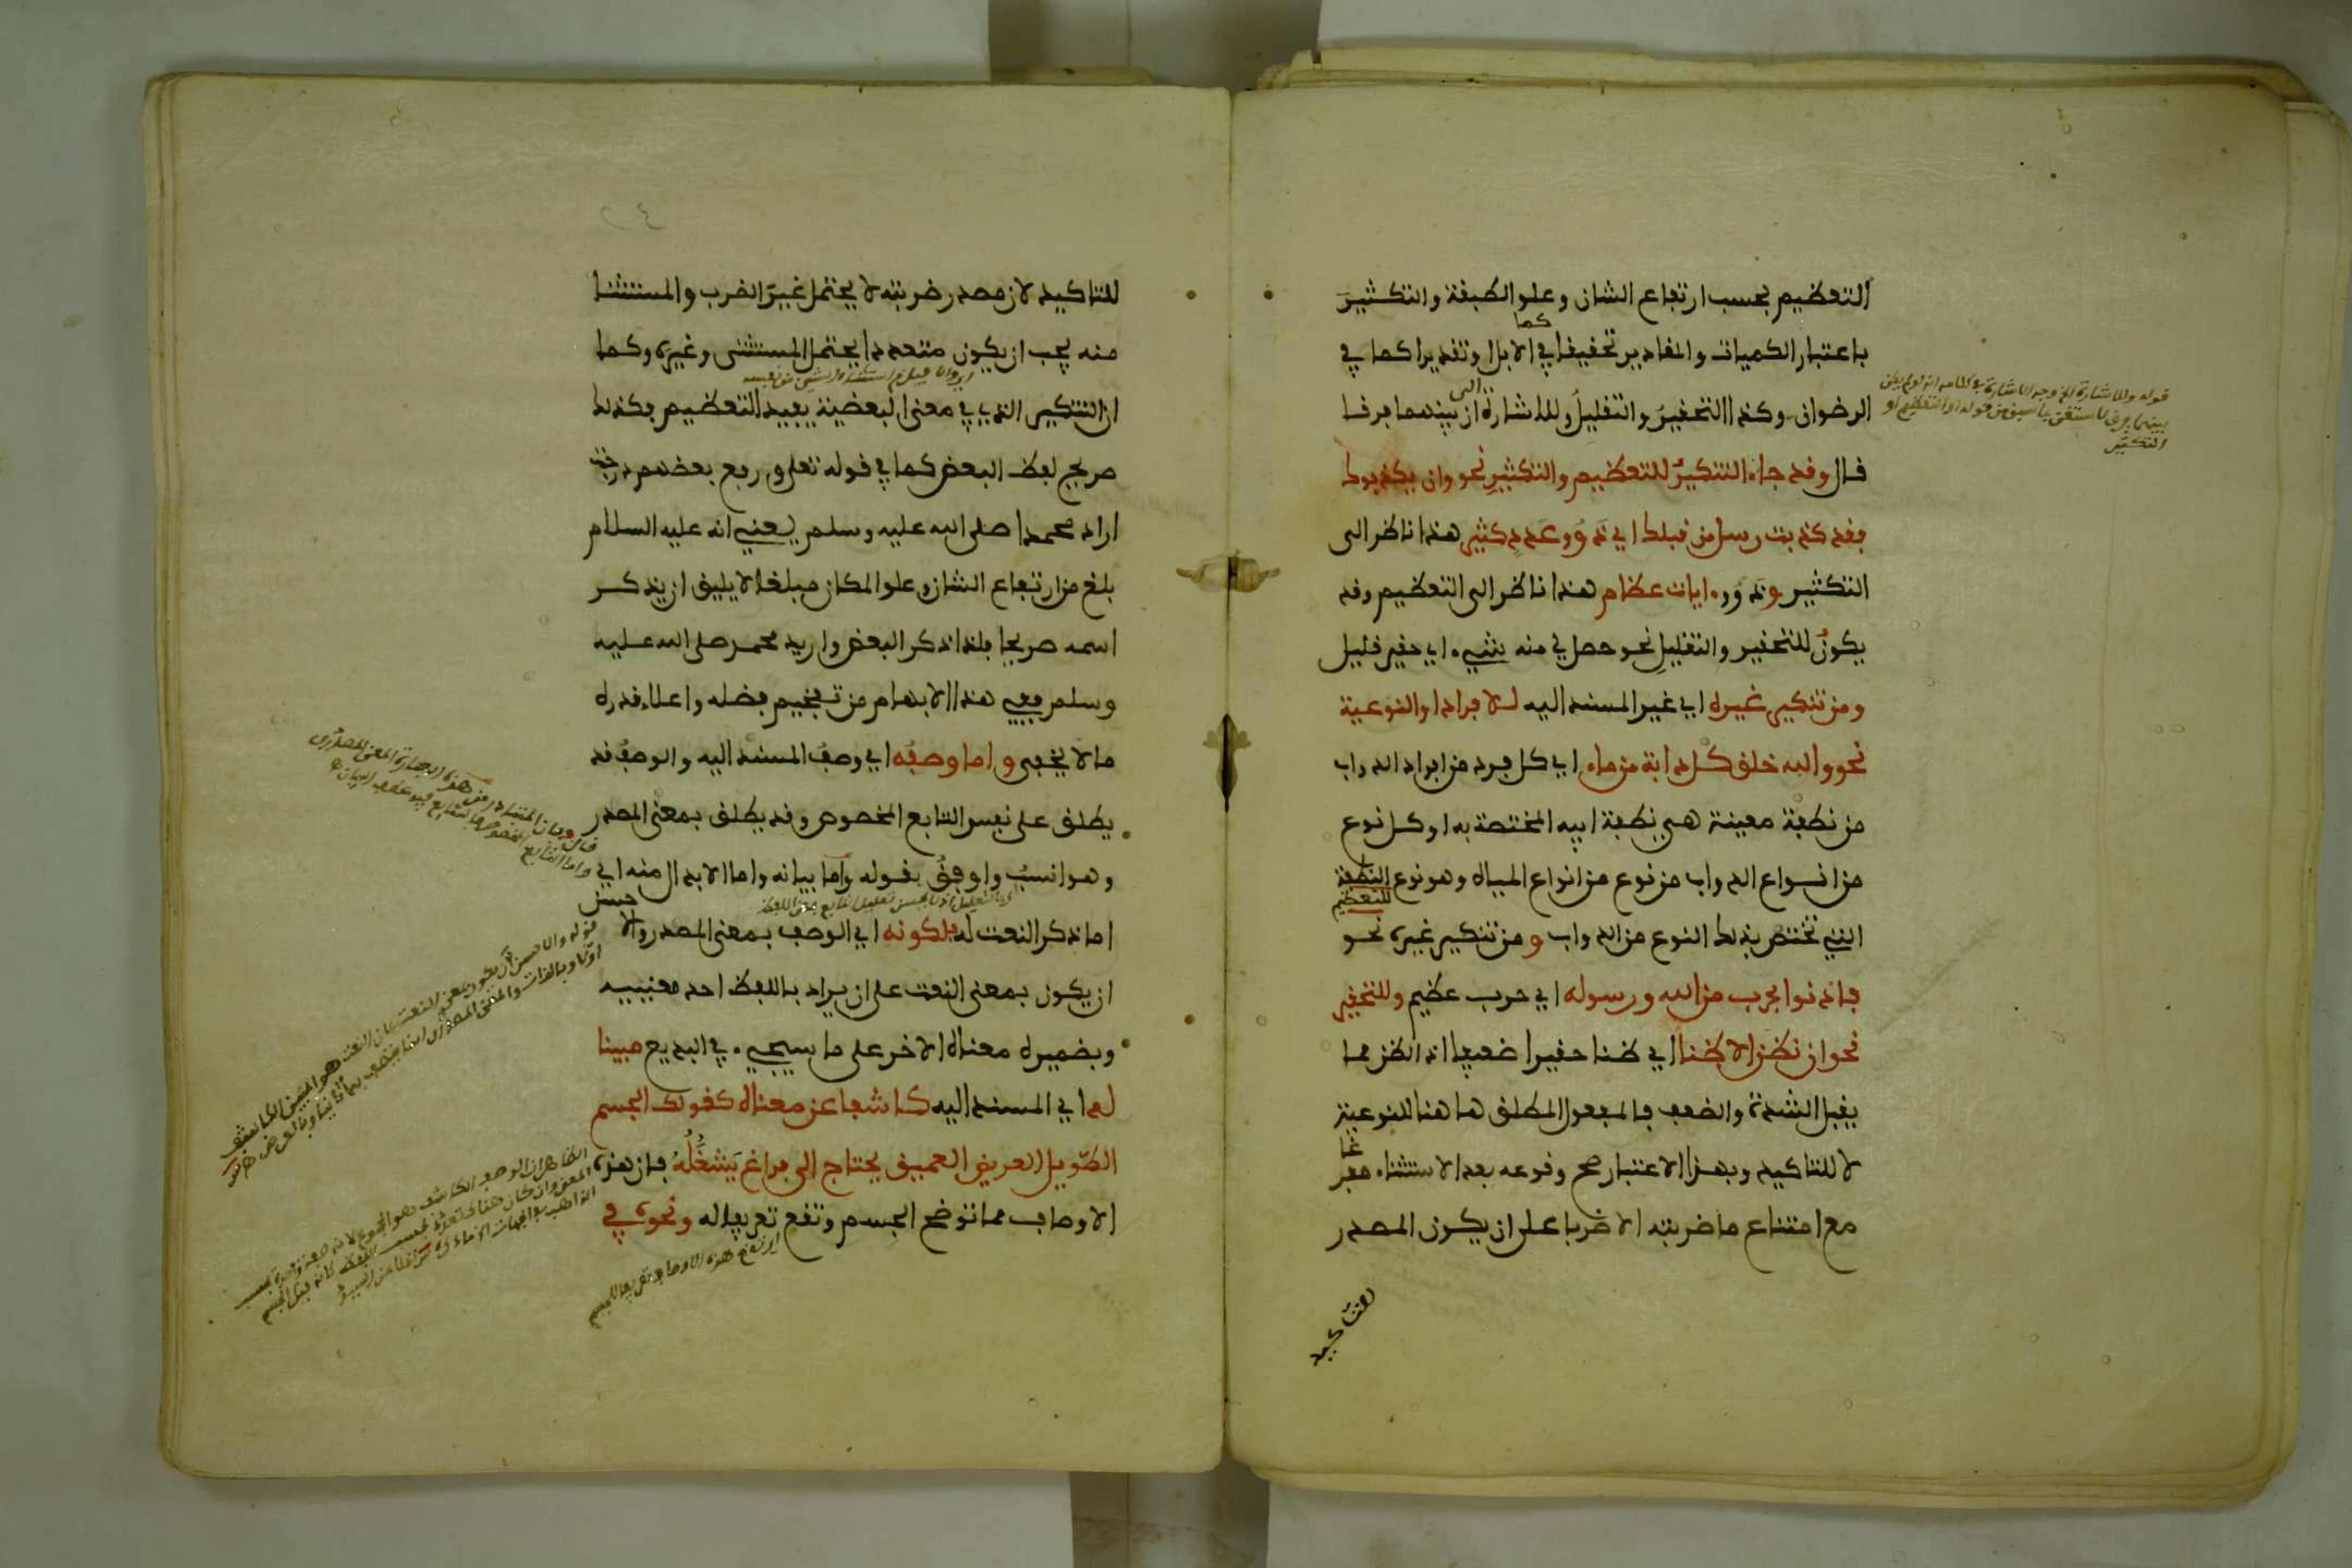 التعظيم بحسب ارتفاع الشان وعلو الطبقة والتكثير
باعتبار الكميات والمقادير تحقيقا كما في الابل او تقديرا كما في
الرضوان وكذا التحقير والتقليل وللاشارة الى ان بينهما فرقا
قال وقد جاء التنكير للتعظيم والتكثير نحو وان يكذبوك
فقد كذبت رسل من قبلك اي ذوو عدد كثير هذا ناظر الى
التكثير وذوو ءايات عظام هذا ناظر الى التعظيم وقد
يكون للتحقير والتقليل نحو حصل لي منه شيء اي حقير قليل
ومن تنكير غيره اي غير المسند اليه للافراد او النوعية
نحو والله خلق كل دابة من ماء اي كل فرد من افراد الدواب
من نطفة معينة هي نطفة ابيه المختصة به او كل نوع
من انواع الدواب من نوع من انواع المياه وهو نوع النطفة
التي تختص بذلك النوع من الدواب و من تنكير غيره للتعظيم نحو
فاذنوا بحرب من الله ورسوله اي حرب عظيم وللتحقير
نحو ان نظن الا ظنا اي ظنا حقيرا ضعيفا اذ الظن مما
يقبل الشدة والضعف فالمفعول المطلق هاهنا للنوعية
لا للتاكيد وبهذا الاعتبار صح وقوعه بعد الاستثناء مفرغا
مع امتناع ما ضربته الا ضربا على ان يكون المصدر
للتاكيد
قوله وللاشارة الخ وجه الاشارة
بينهما فرق لاستغنى بما سبق من قوله او التعظيم او
التكثير
للتاكيد لان مصدر ضربته لا يحتمل غير الضرب والمستثنا
منه يجب ان يكون متعددا يحتمل المستثنى وغيره وكما
ان التنكير الذي في معنى البعضية يفيد التعظيم فكذلك
صريح لفظ البعض كما في قوله تعلى ورفع بعضهم درجت
اراد محمدا صلى الله عليه وسلم يعني انه عليه السلام
بلغ من ارتفاع الشان وعلو المكان مبلغا لا يليق ان يذكر
اسمه صريحا فلذا ذكر البعض واريد محمد صلى الله عليه
وسلم ففي هذا الابهام من تفخيم فضله واعلاء قدره
ما لا يخفى و اما وصفه اي وصف المسند اليه والوصف قد
يطلق على نفس التابع المخصوص وقد يطلق بمعنى المصدر
وهو انسب واوفق بقوله واما بيانه واما الابدال منه اي
اما ذكر النعت له فلكونه اي الوصف بمعنى المصدر والاحسن
ان يكون بمعنى النعت على ان يراد باللفظ احد معنييه
وبضميره معناه الاخر على ما سيجيء في البديع مبينا
له اي المسند اليه كاشفا عن معناه كقولك الجسم
الطويل العريض العميق يحتاج الى فراغ يشغله فان هذه
الاوصاف مما توضح الجسم وتقع تعريفا له ونحوه في
اي تقع هذه الاوصاف تعريفا للجسم